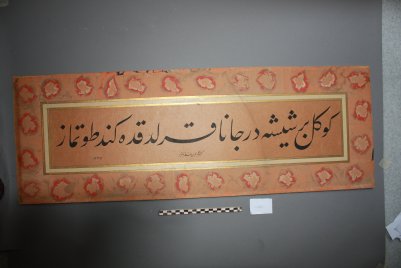 كوكل بر شيشه در جانا قرلدقده كند طوتماز